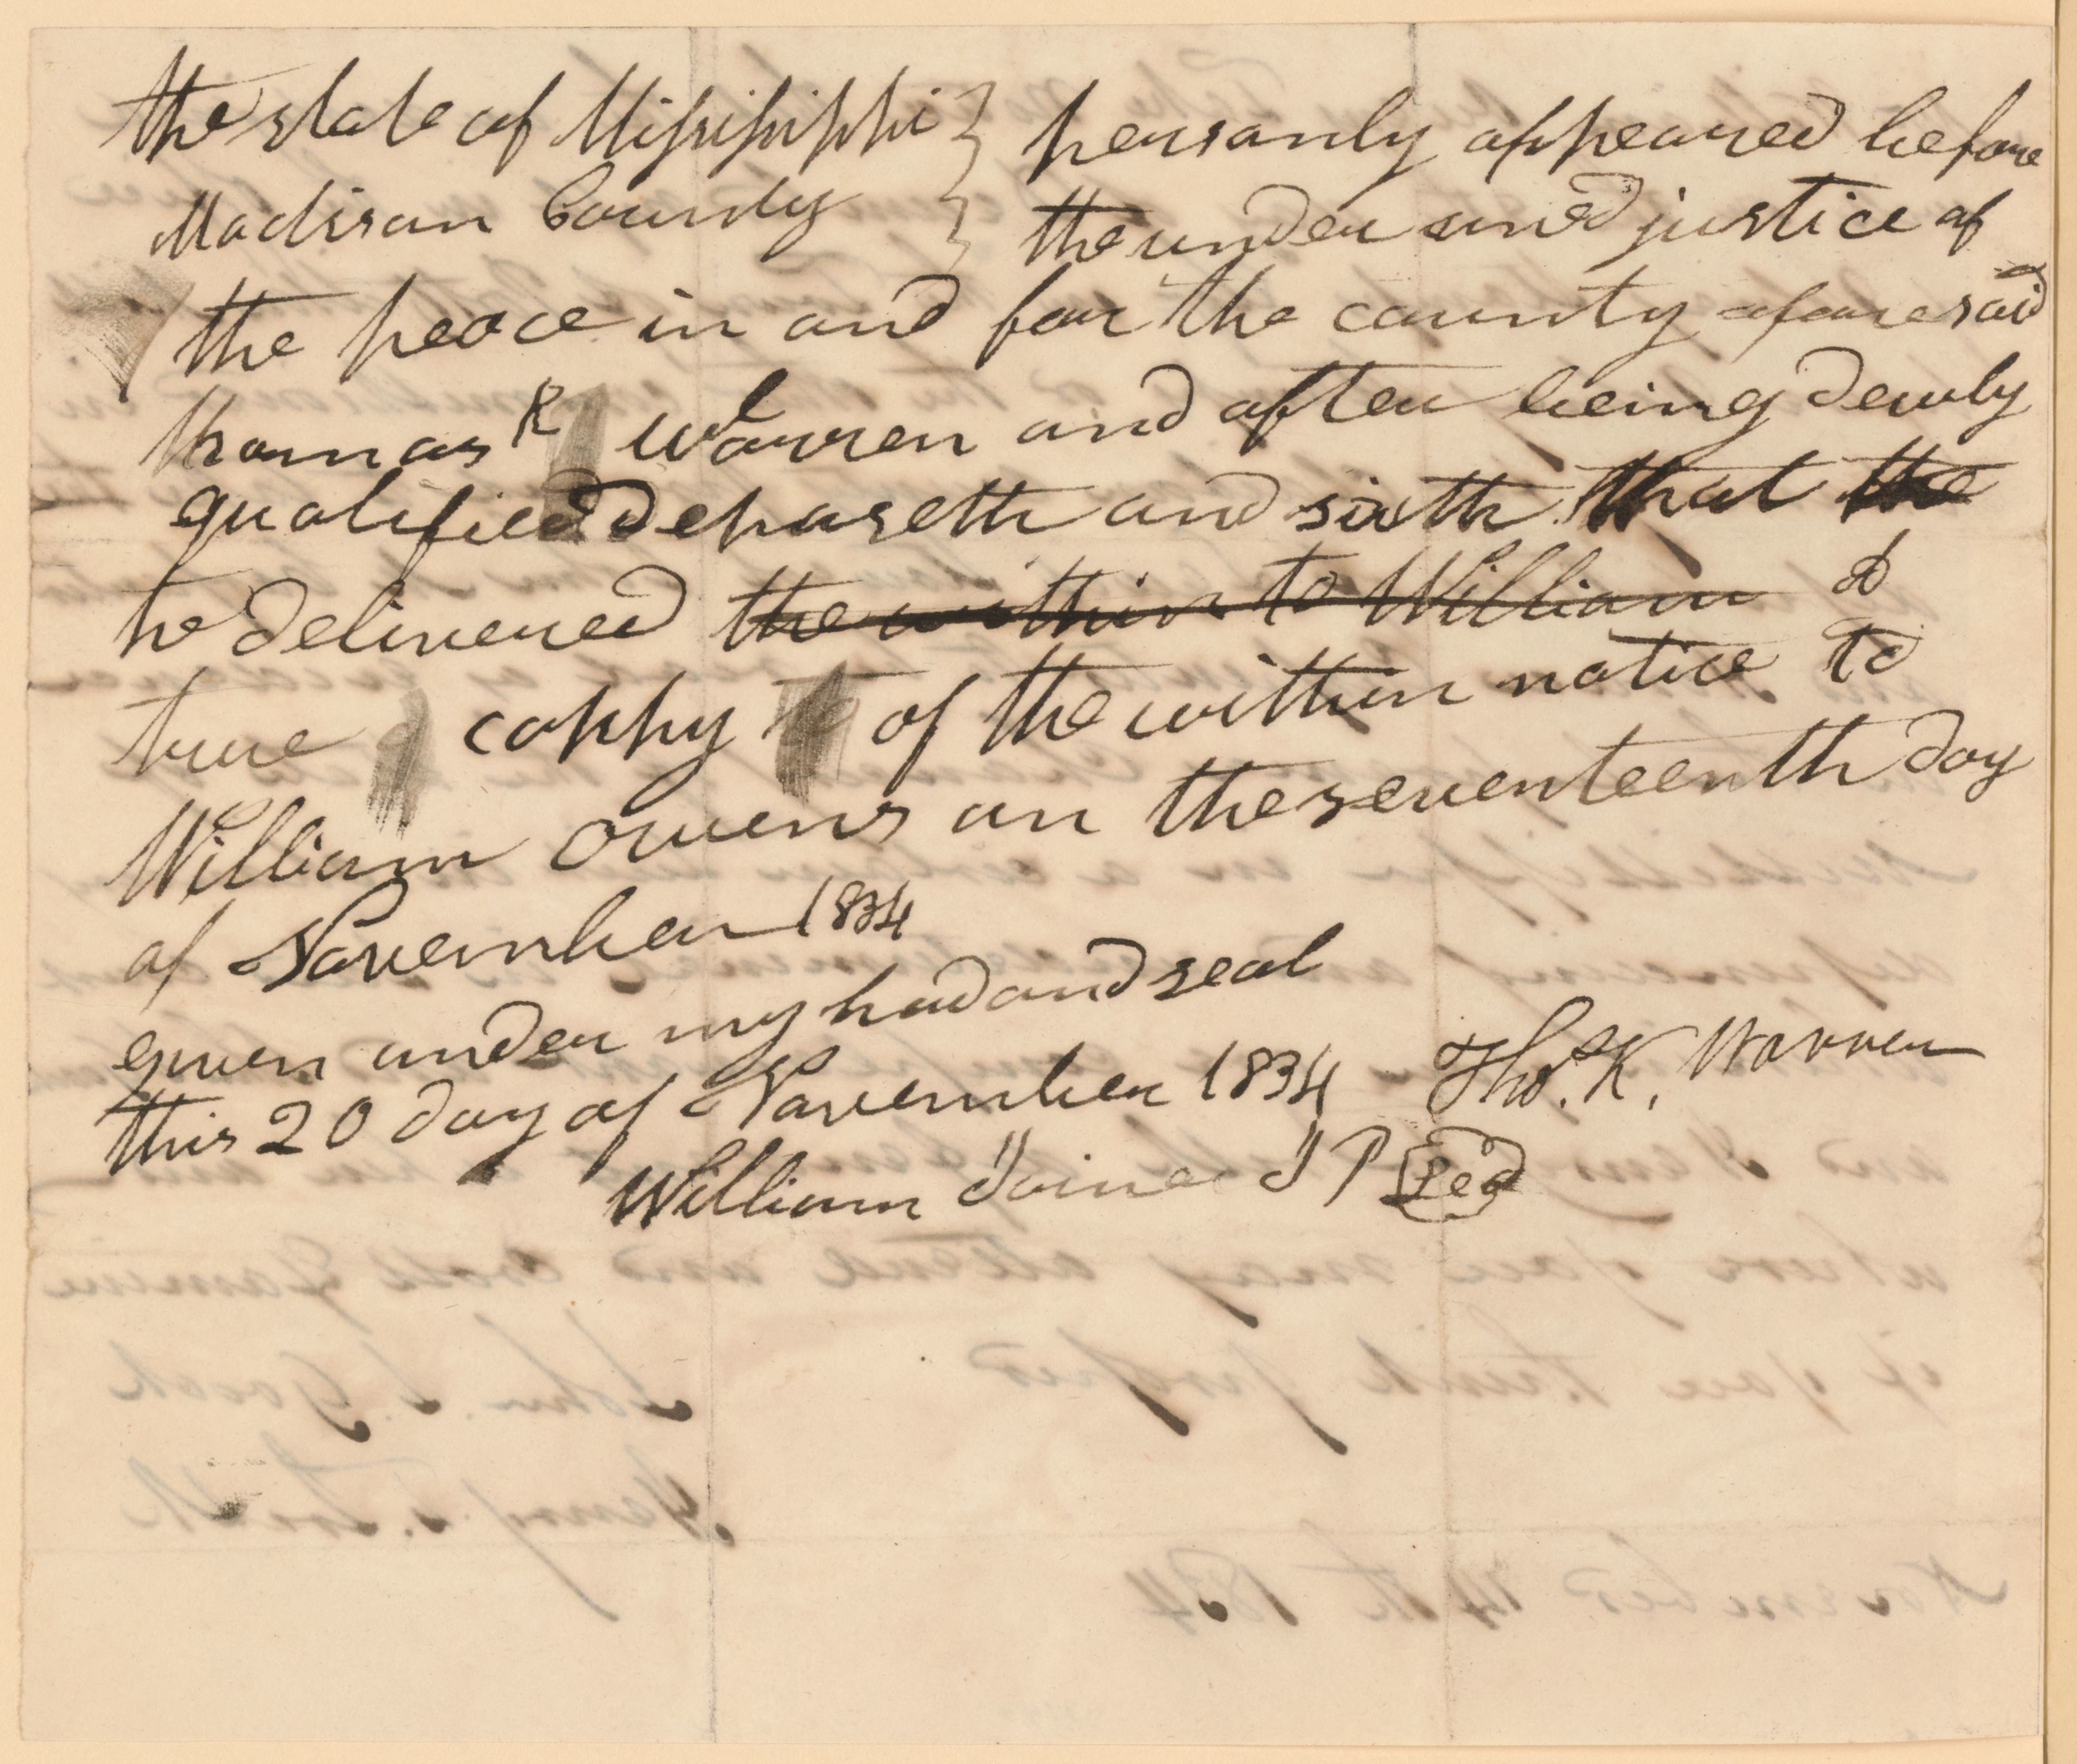 the state of Missisippi } persanly appeared before
Madison County } the under sined justice of
the peace in and for the county afore said
thomas K Warren and after being dewly
qualified deposeth and sixth that the
he delivered the within to William a
true coppy of the within notice to
William Owens on the seventeenth day
of November 1834
given under my had and seal
this 20 day of November 1834 Tho. K. Warren
William Joiner J P Seal